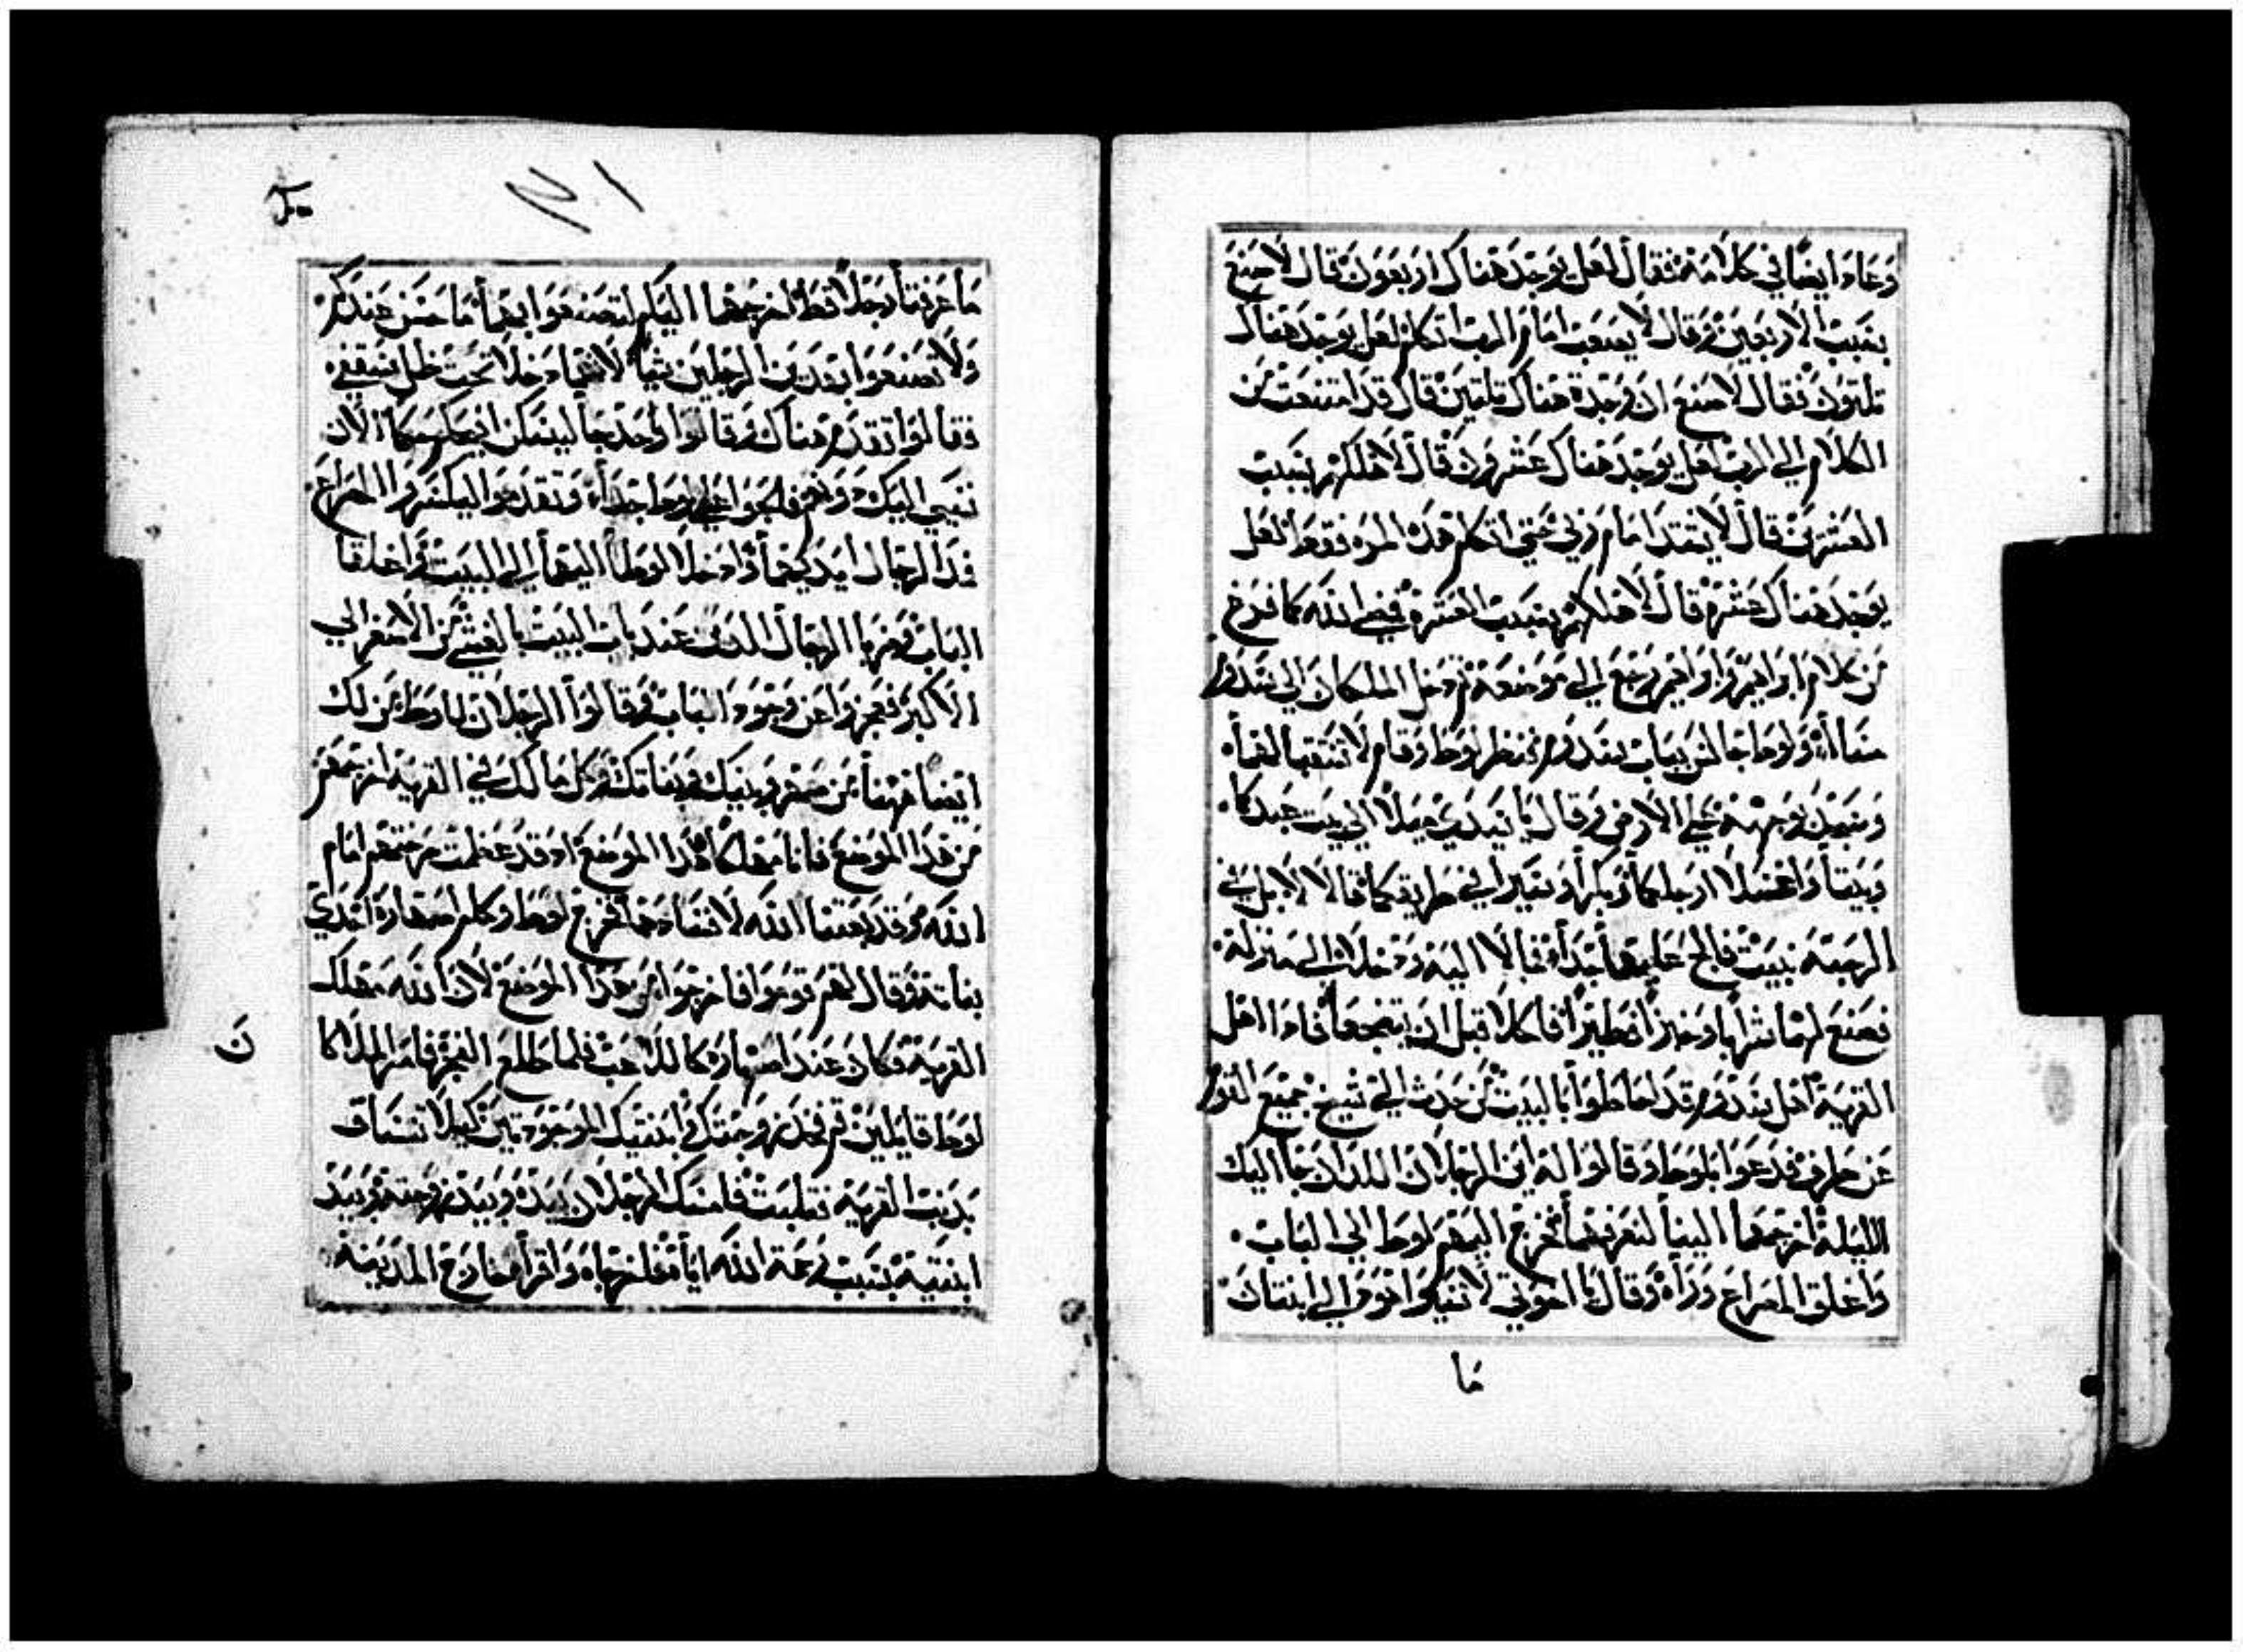 وعاد ايضا في كلامه فقال لعل يوجد هناك اربعون قال لا اصنع
بسبب الاربعين وقال لا يصعب امام الرب اتكلم لعل يوجد هناك
تلتون فقال لا اصنع ان وجدة هناك تلتين قال قد امتنعت من
الكلام الي الرب لعل يوجد هناك عشرون قال لا اهلكهم بسبب
العشرين قال لا يشتد امام ربي حتي اتكلم هذه المره فقط لعل
يوجد هناك عشرة قال لا اهلكهم بسبب العشرة فمضي الله كما فرغ
من كلام ابراهيم وابراهيم رجع الي موضعه تم دخل الملكان الي سدوم
مساا ولوط جالس بباب سدوم فنظر لوط وقام لاستقبالهما
وسجد بوجهه علي الارض وقال يا سيدي ميلا الي بيت عبدكما
وبيتا واغسلا ارجلكما وبكرا وسيرا في طريقكما قالا لا بل في
الرحبة نبيت فالح عليهما جدا فمالا اليه ودخلا الي منزله
فصنع لهما شرابا وخبزا فطيرا فاكلا قبل ان ينضجعا فاذا اهل
القرية اهل سدوم قد احاطوا بالبيت من حدث الي شيخ جميع القوم
عن طرف فدعوا بلوط وقالوا له اين الرجلان اللذان جاا اليك
الليلة اخرجهما الينا لنعرفهما فخرج اليهم لوط الي الباب
واغلق المصراع وراه وقال يا اخوتي لا تسيوا هوذا لي ابنتان
ما
١٢١
ما عرفتا رجلا قط اخرجهما اليكم لتصنعوا بهما ما حسن عندكم
ولا تصنعوا بهذين الرجلين شيا لانهما دخلا تحت ظل سقفي
فقالوا تقدم هناك وقالوا واحد جا ليسكن ايحكم حكما الان
نسي اليك دونهم فلجوا علي لوط جدا وتقدموا ليكسروا المصراع
فمد الرجال ايديهما وادخلا لوطا اليهما الي البيت واغلقا
الباب وضربا الرجال الذين عند باب البيت بالغشي من الاصغر الي
الاكبر فعجزوا عن وجود الباب وقالوا الرجلان للوط من لك
ايضا ههنا من صهر وبنيك وبناتك وكل ما لك في القرية اخرجهم
من هذا الموضع فانا مهلكا هذا الموضع اذ قد عظمت صرختهم امام
الله وقد بعتنا الله لافنادهما فخرج لوط وكلم اصهاره اخدي
بناته وقال لهم قوموا فاخرجوا من هذا الموضع لان الله مهلك
القرية فكان عند اصهاره كاللاعب فلما طلع الفجر فامر الملاكا
ن
لوط قايلين قم فخذ زوجتك وابنتيك الموجودتين كيلا تنساق
بذنب القرية فتلبت فامسك الرجلان بيده وبيد زوجته وبيد
ابنتيه بسبب رحمة الله اياه فاخرجاه واقراه خارج المدينة